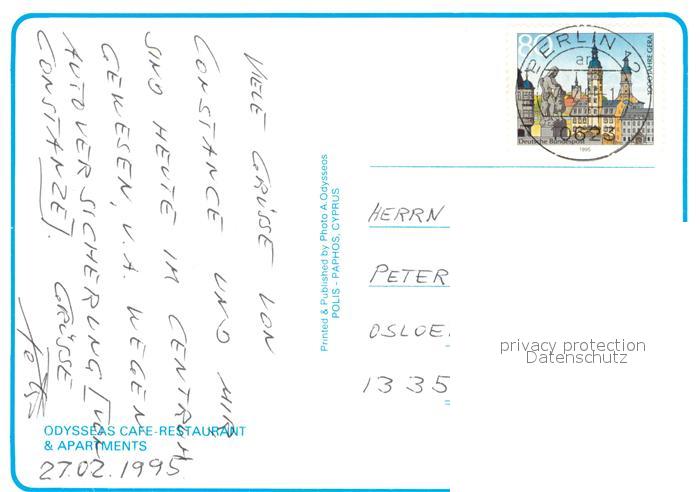 VIELE GRÜSSE VON
CONSTANCE UND MIR
SIND HEUTE IM CENTRUM
GEWESEN, U.A. WEGEN
AUTOVERSICHERUNG [VON
CONSTANZE]. GRÜSSE
ODYSSEAS CAFE-RESTAURANT
& APARTMENTS
27.02.1995
Printed & Published by Photo A.Odysseos
POLIS - PAPHOS, CYPRUS
80
1000 JAHRE GERA
Deutsche Bundespost
1995
BERLIN 12
an
10623
HERRN
PETER
OSLOE
1335
privacy protection
Datenschutz